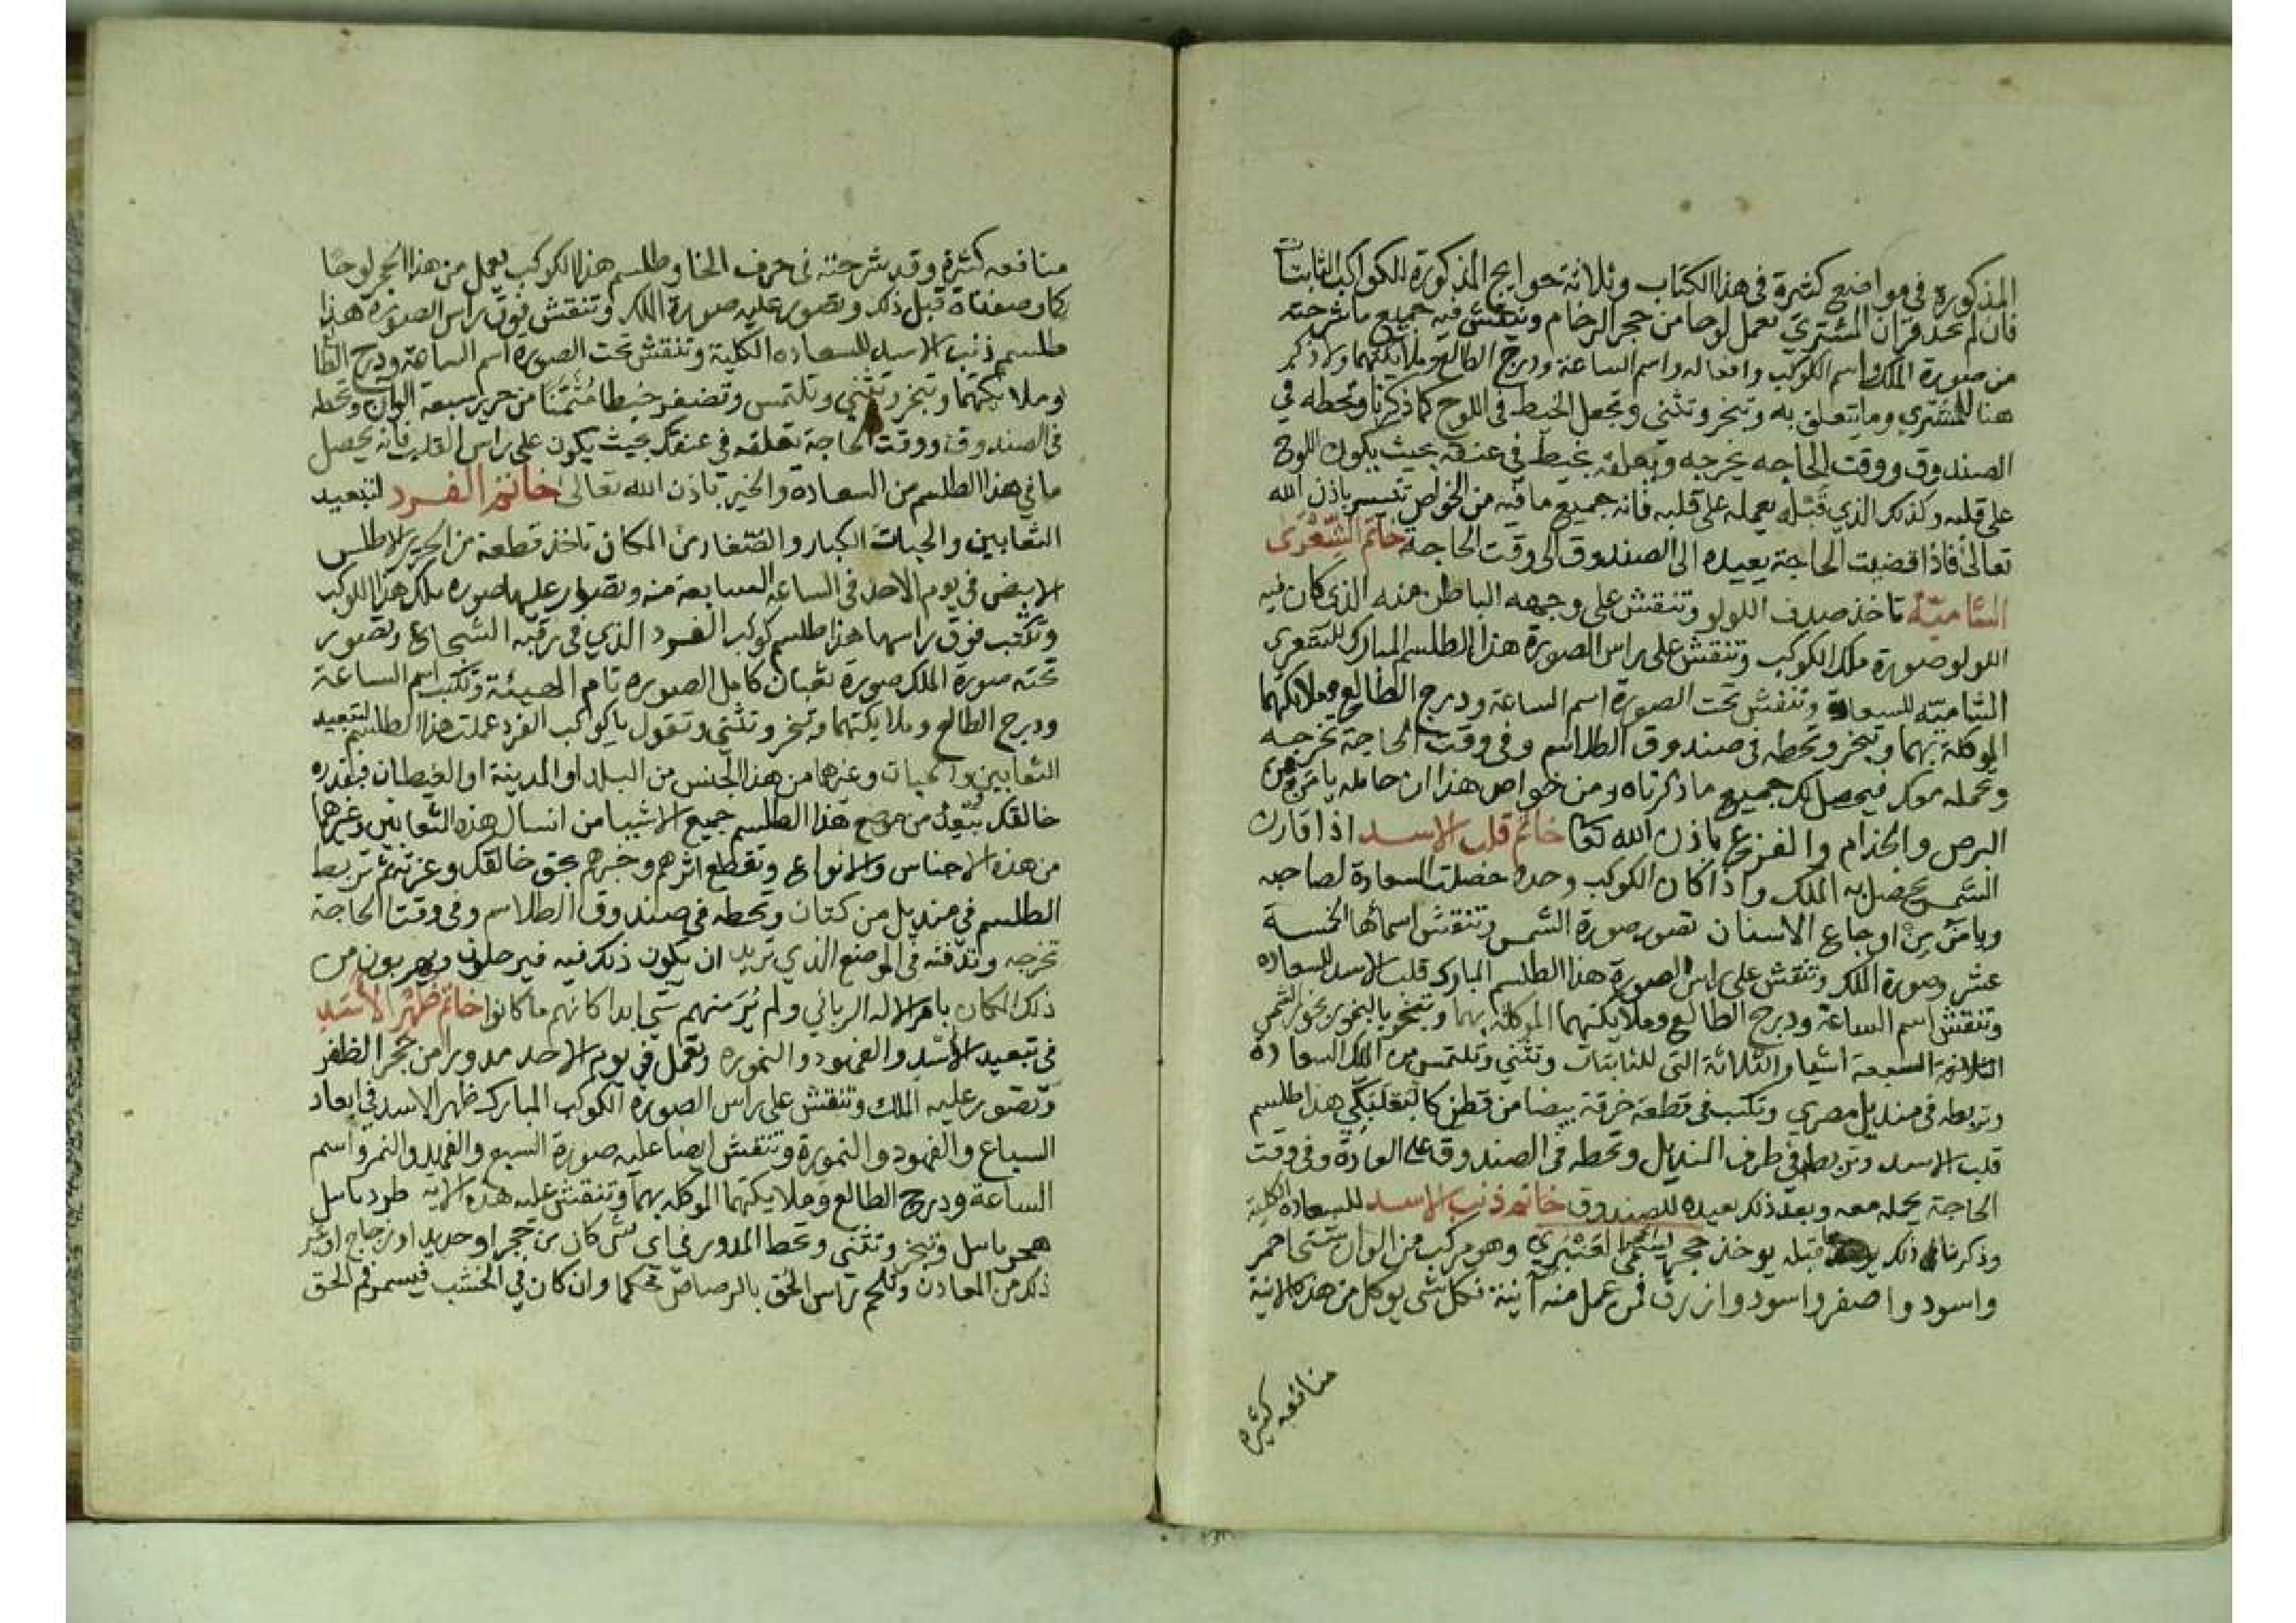 المذكوره في مواضع كثيرة في هذا الكتاب وثلاثة حوايج المذكورة للكواكب الثابتات
فان لم تجد قران المشتري تعمل لوحا من حجر الرخام وتنقش فيه جميع ما شرحته
من صورة الملك واسم الكوكب وافعاله واسم الساعة ودرج الطالع وملايكتهما ولا ذكر
هنا للمشتري وما يتعلق به وتبخر وتثني وتجعل الخيط في اللوح كما ذكرنا وتحطه في
الصندوق ووقت الحاجه يخرجه ويعلقه بخيط في عنقه بحيث يكون اللوح
على قلبه وكذلك الذي قبله يعمله على قلبه فانه جميع ما فيه من الخواص تتيسر باذن الله
تعالى فاذا قضيت الحاجة يعيده الى الصندوق الى وقت الحاجة خاتم الشعرى
الشاميّة تاخذ صدف اللولو وتنقش على وجهه الباطن منه الذي كان فيه
اللولو صورة ملك الكوكب وتنقش على راس الصورة هذا الطلسم المبارك للشعرى
الشاميّه للسعادة وتنقش تحت الصورة اسم الساعة ودرج الطالع وملايكتهما
الموكلة بهما وتبخر وتحطه في صندوق الطلاسم وفي وقت الحاجة تخرجه
وتحمله معك فيحصل لك جميع ما ذكرناه ومن خواص هذا ان حامله يامن من
البرص والجذام والفزع باذن الله تعا خاتم قلب الاسد اذا قارن
الشمس يحصل به الملك واذا كان الكوكب وحده حصلت السعادة لصاحبه
ويامن من اوجاع الاسنان تصور صورة الشمس وتنقش اسمائها الخمسة
عشر وصورة الملك وتنقش على راس الصورة هذا الطلسم المبارك قلب الاسد للسعاده
وتنقش اسم الساعة ودرج الطالع وملايكتهما الموكلة بهما وتبخر بالبخور بخور الشمس
الثلاثة السبعة اشيا والثلاثة التي للثابتات وتثني وتلتمس من الملك السعاده
وتربطه في منديل مصري وتكتب في قطعة خرقة بيضا من قطن كالبعلبكي هذا طلسم
قلب الاسد وتربطها في طرف المنديل وتحطه في الصندوق على العادة وفي وقت
الحاجة يحمله معه وبعد ذلك يعيده للصندوق خاتم ذنب الاسد للسعادة الكلية
وذكرنا ذلك قبله يوخذ حجر وهو مركب من الوان شتى احمر
واسود واصفر واسود وازرق فمن عمل منه آنية فكل شي يوكل من هذه الانية
منافعه كثيره
منافعه كثيرة وقد شرحته في حرف الخا وطلسم هذا الكوكب يعمل من هذا الحجر لوحا
كما وصفناه قبل ذلك وتصور عليه صورة الملك وتنقش فوق راس الصورة هذا
طلسم ذنب الاسد للسعاده الكلية وتنقش تحت الصورة اسم الساعة ودرج الطالع
وملايكتهما وتبخر وتثني وتلتمس وتضفر خيطا مُثمّنا من حرير سبعة الوان وتحطه
في الصندوق ووقت الحاجة تعلقه في عنقك بحيث يكون على راس القلب فانه يحصل
ما في هذا الطلسم من السعادة والخير باذن الله تعالى خاتم الفرد لتبعيد
الثعابين والحيات الكبار والصغار من المكان تاخذ قطعة من الحرير الاطلس
الابيض في يوم الاحد في الساعة السابعة منه وتصور عليها صوره ملك هذا الكوكب
وتكتب فوق راسها هذا طلسم كوكب الفرد الذي في رقبة الشجاع وتصور
تحته صورة الملك صورة ثعبان كامل الصوره تام الهيئة وتكتب اسم الساعة
ودرج الطالع وملايكتهما وتبخر وتثني وتقول يا كوكب الفرد عملت هذا الطلسم لتبعيد
الثعابين والحيات وغيرها من هذا الجنس من البلد او المدينة او الغيطان فبقدره
خالقك تبعد من موضع هذا الطلسم جميع الاشيا من انسال هذه الثعابين وغيرها
من هذه الاجناس والانواع وتقطع اثرهم وخبرهم بحق خالقك وعزته ثم تربط
الطلسم في منديل من كتان وتحطه في صندوق الطلاسم وفي وقت الحاجة
تخرجه وتدفنه في الموضع الذي تريد ان يكون ذلك فيه فيرحلون ويهربون من
ذلك المكان بامر الاله الرباني ولم يُرَ منهم شي ابدا كانهم ما كانوا خاتم ظهر الأسَد
في تبعيد الأسْد والفهود والنموره وتعمل في يوم الاحد مدورا من حجر الظفر
وتصور عليه الملك وتنقش على راس الصوره الكوكب المبارك ظهر الاسد في ابعاد
السباع والفهود والنمورة وتنقش ايضا عليه صورة السبع والفهد والنمر واسم
الساعة ودرج الطالع وملايكتهما الموكله بهما وتنقش عليه هذه الايه طرد باسل
هجر باسل وتبخر وتثني وتحط المدور في اي شي كان من حجر او حديد او زجاج او غير
ذلك من المعادن وتلحم راس الحُق بالرصاص محكما وان كان في الخشب فيسمر فم الحق